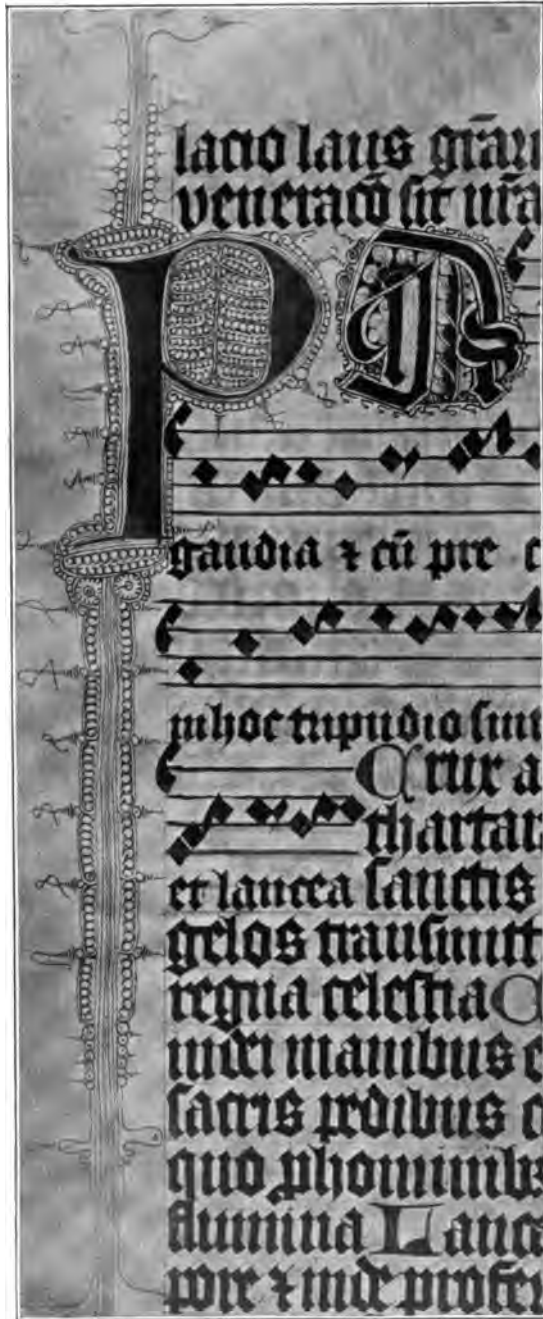 lacio laus grāu
veneracō sit nr̄a
P A
gaudia ⁊ cū pre c
in hoc tripudio sint
Crux a
thartar
et lancea sanctis
gelos transmitt
regna celestia C
iudei manibus c
sacris pedibus c
quo ꝓ hominibꝫ
flumina Lance
pore ⁊ inde profer